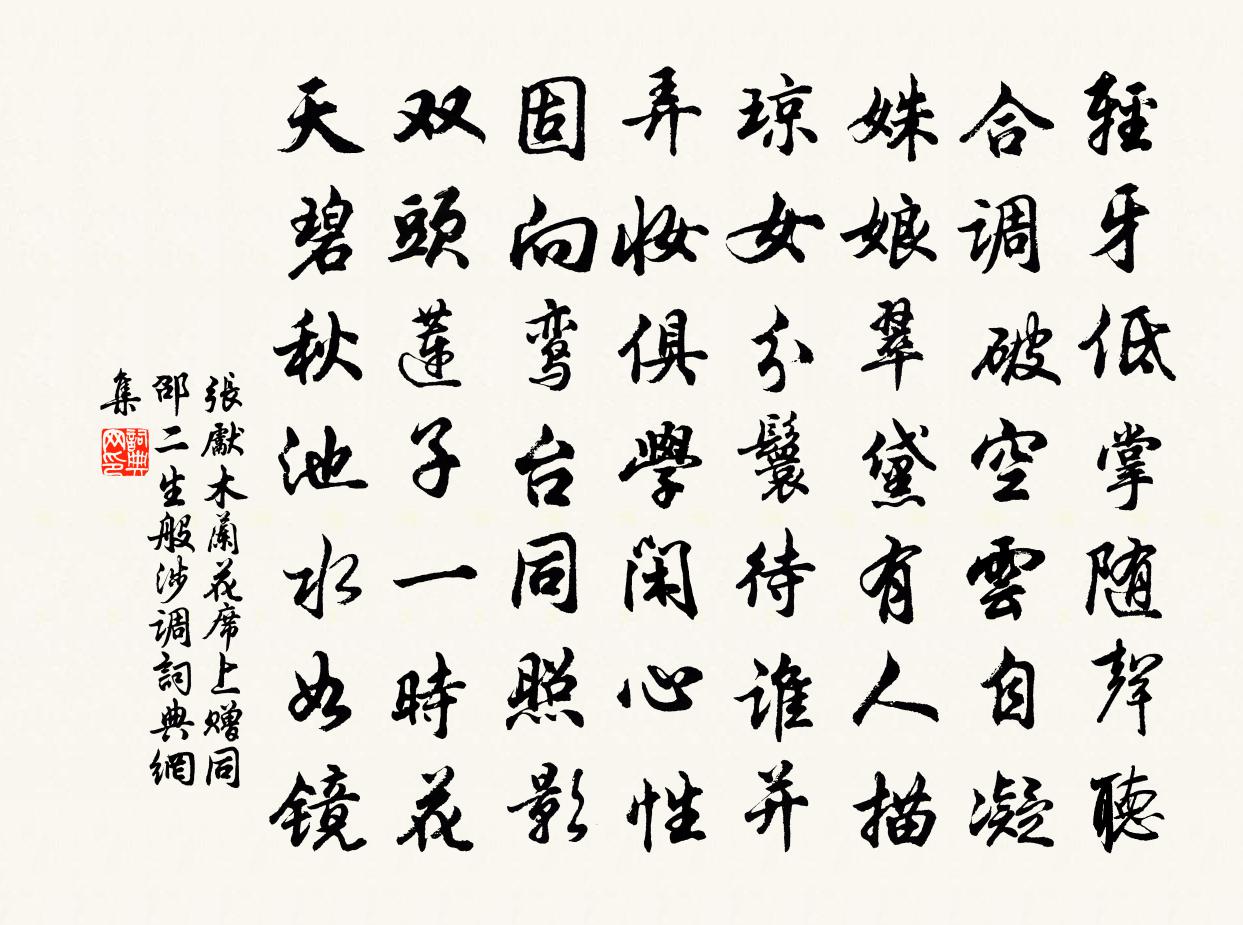 輕牙低掌随聲聽
合调破空雲自凝
姝娘翠黛有人描
琼女分鬟待誰并
弄妝俱學闲心性
固向鸾台同照影
双頭蓮子一時花
天碧秋池水如镜
張獻木蘭花席上赠同
邵二生般涉调詞典網
集
詞典网印